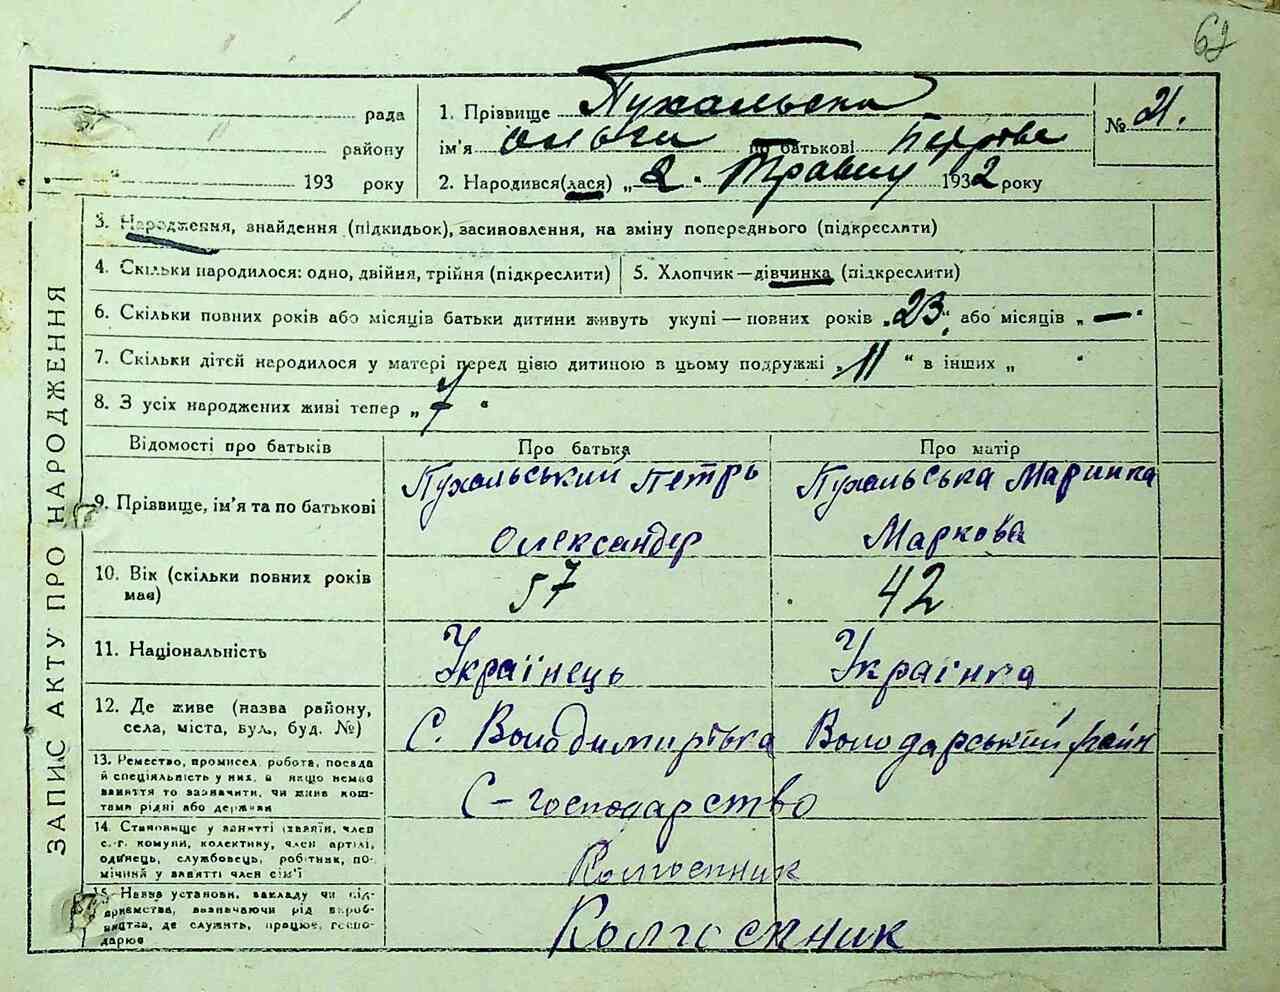 62
рада
району
193 року
1. Прізвище Пухальска
ім'я Ольга по батькові Петрова
2. Народився(лася) „2" Травня 1932 року
№ 21.
ЗАПИС АКТУ ПРО НАРОДЖЕННЯ
3. Народження, знайдення (підкидьок), засиновлення, на зміну попереднього (підкреслити)
4. Скільки народилося: одно, двійня, трійня (підкреслити) 5. Хлопчик—дівчинка (підкреслити)
6. Скільки повних років або місяців батьки дитини живуть укупі—повних років „23", або місяців „—"
7. Скільки дітей народилося у матері перед цією дитиною в цьому подружжі „11" в інших „ "
8. З усіх народжених живі тепер „7"
Відомості про батьків Про батька Про матір
9. Прізвище, ім'я та по батькові Пухальський Петрь Олександер Пухальська Маринка Маркова
10. Вік (скільки повних років має) 57 42
11. Національність Українець Українка
12. Де живе (назва району, села, міста, вул., буд. №) С. Володимирівка Володарський район
13. Ремество, промисел, робота, посада й спеціяльність у них, а якщо немає заняття то зазначити, чи живе коштами рідні або держави С-господарство
14. Становище у занятті (хазяїн, член с.-г. комуни, колективу, член артілі, одинець, службовець, робітник, помічний у занятті член сім'ї Колгоспник
15. Назва установи, закладу чи підприємства, зазначаючи рід виробництва, де служить, працює, господарює Колгоспник